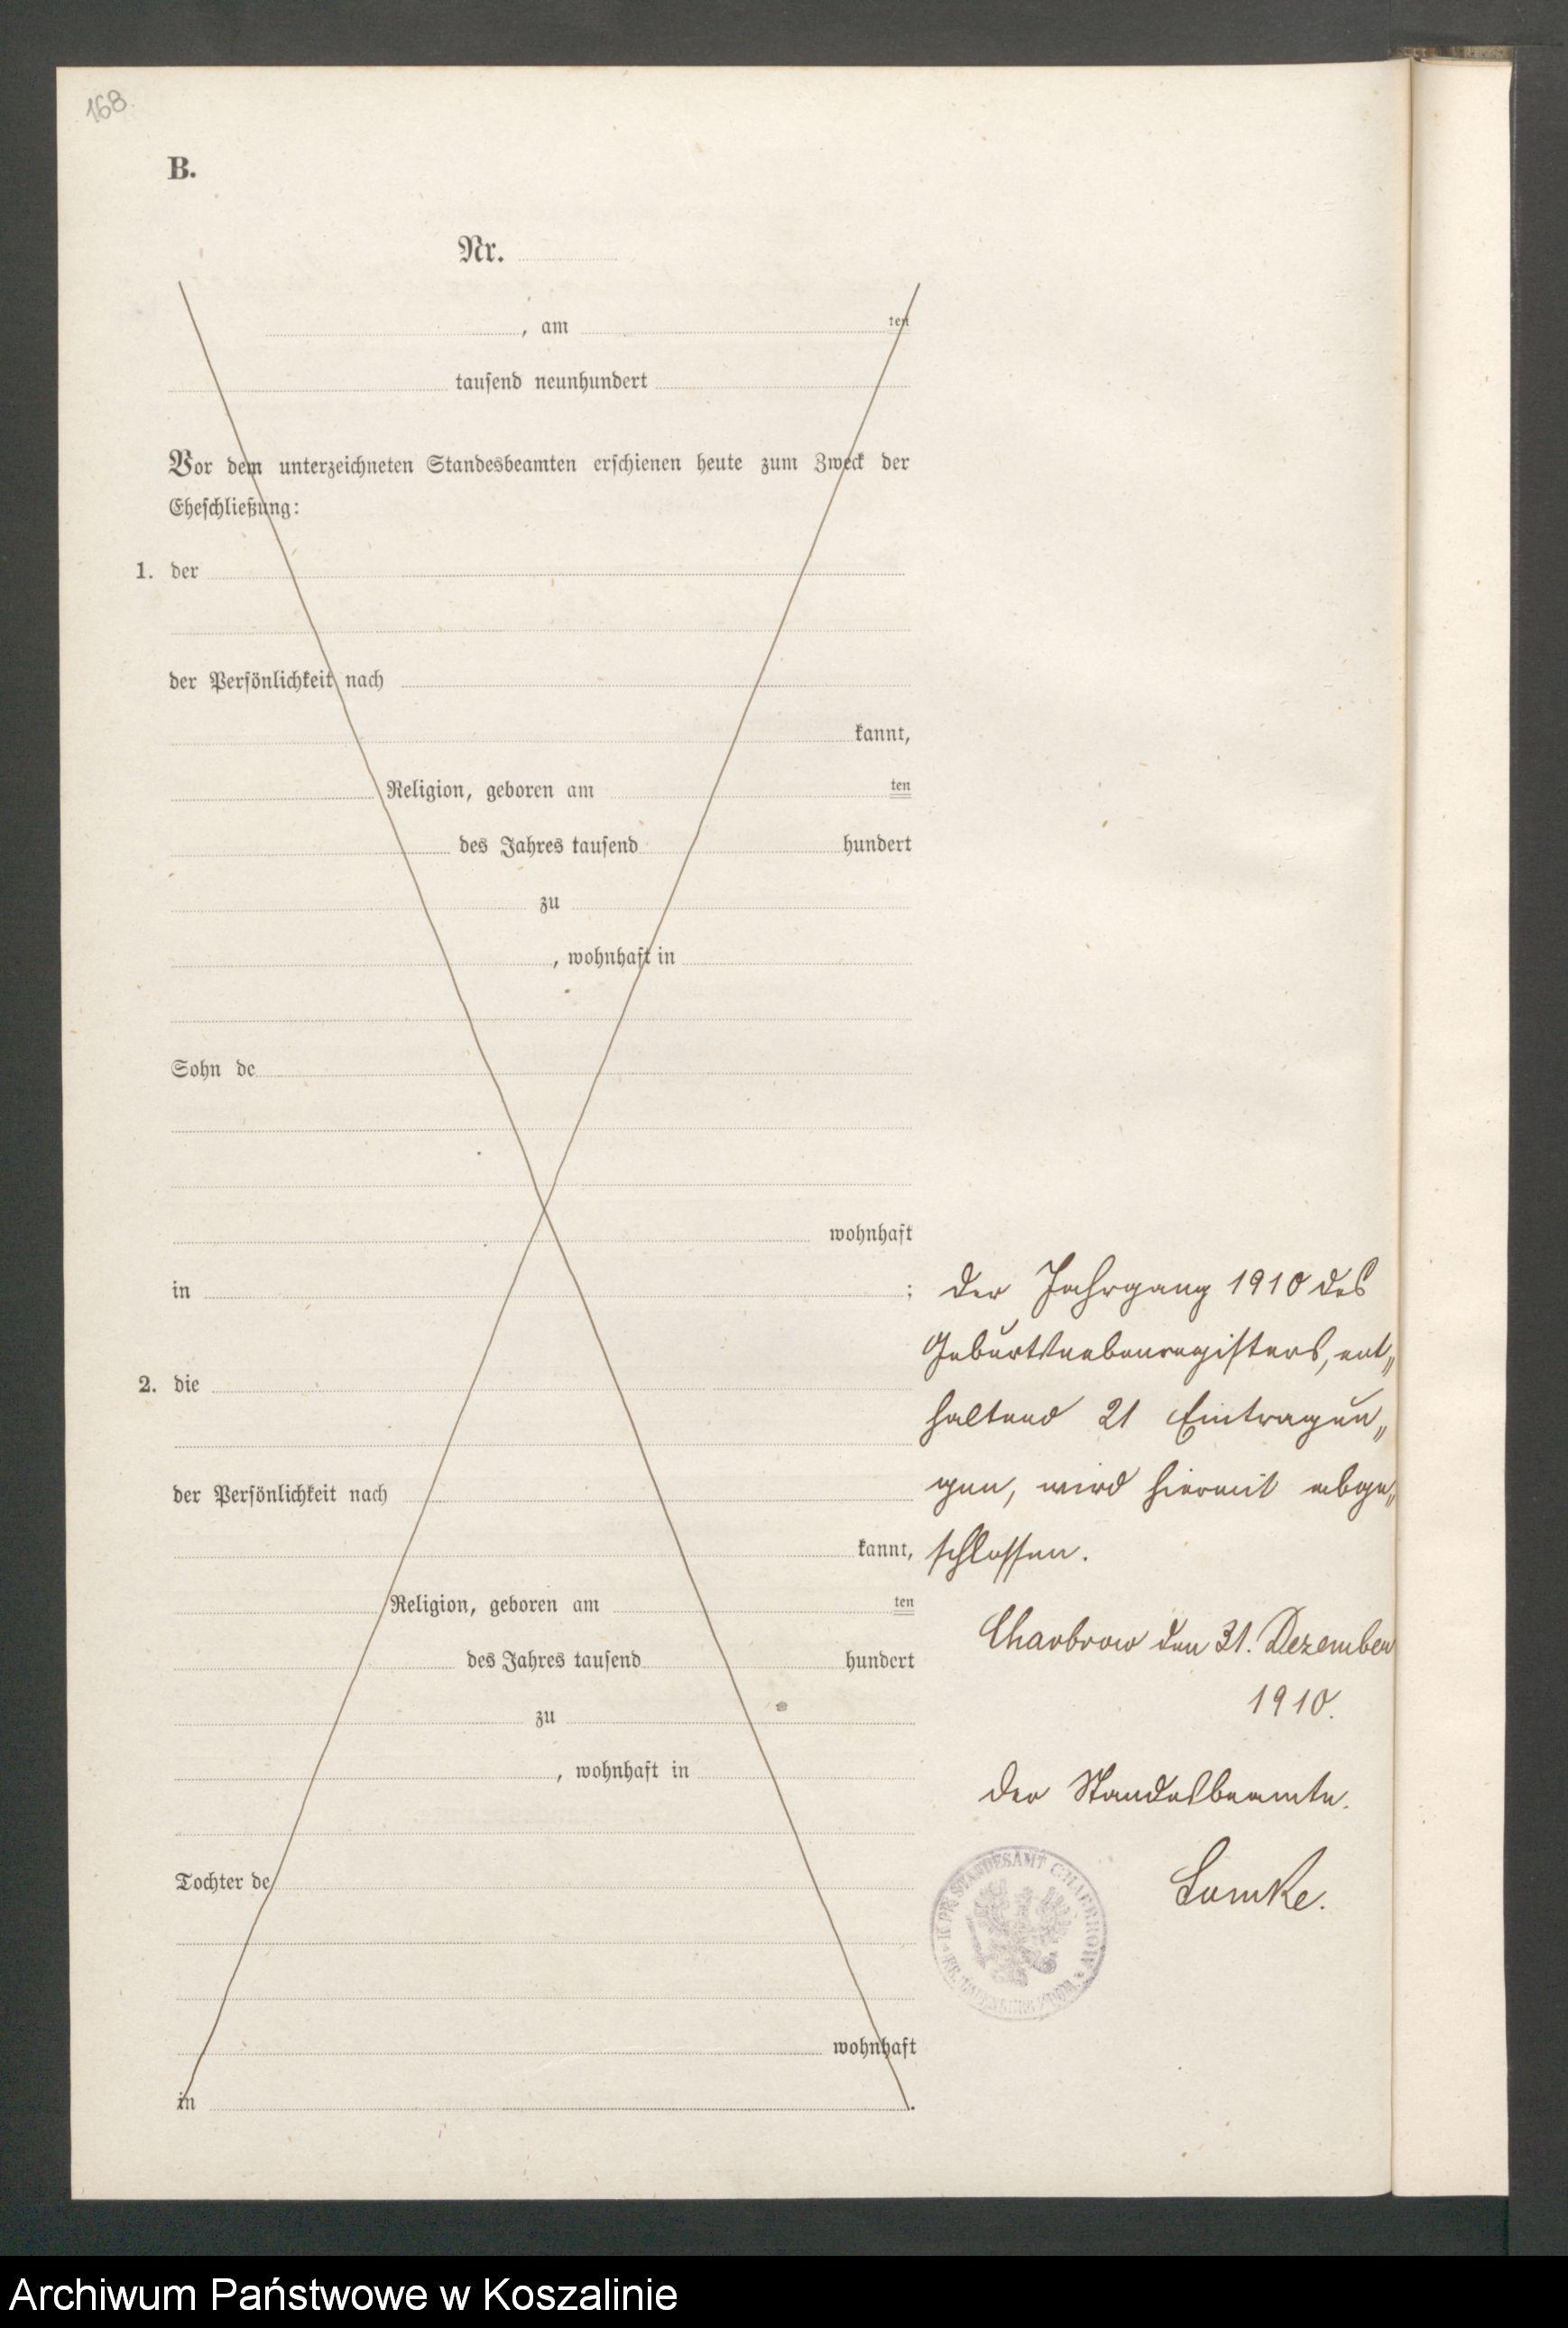 168.
B.
Nr.
, am ten
tausend neunhundert
Vor dem unterzeichneten Standesbeamten erschienen heute zum Zweck der
Eheschließung:
1. der
der Persönlichkeit nach
kannt,
Religion, geboren am ten
des Jahres tausend hundert
zu
, wohnhaft in
Sohn de
wohnhaft
in ;
2. die
der Persönlichkeit nach
kannt,
Religion, geboren am ten
des Jahres tausend hundert
zu
, wohnhaft in
Tochter de
wohnhaft
in .
Der Jahrgang 1910 des
Geburtsnebenregisters, ent„
haltend 21 Eintragun„
gen, wird hiermit abge„
schlossen.
Charbrow den 31. Dezember
1910.
Der Standesbeamte.
Lemke.
K. PR. STANDESAMT CHARBROW
Archiwum Państwowe w Koszalinie